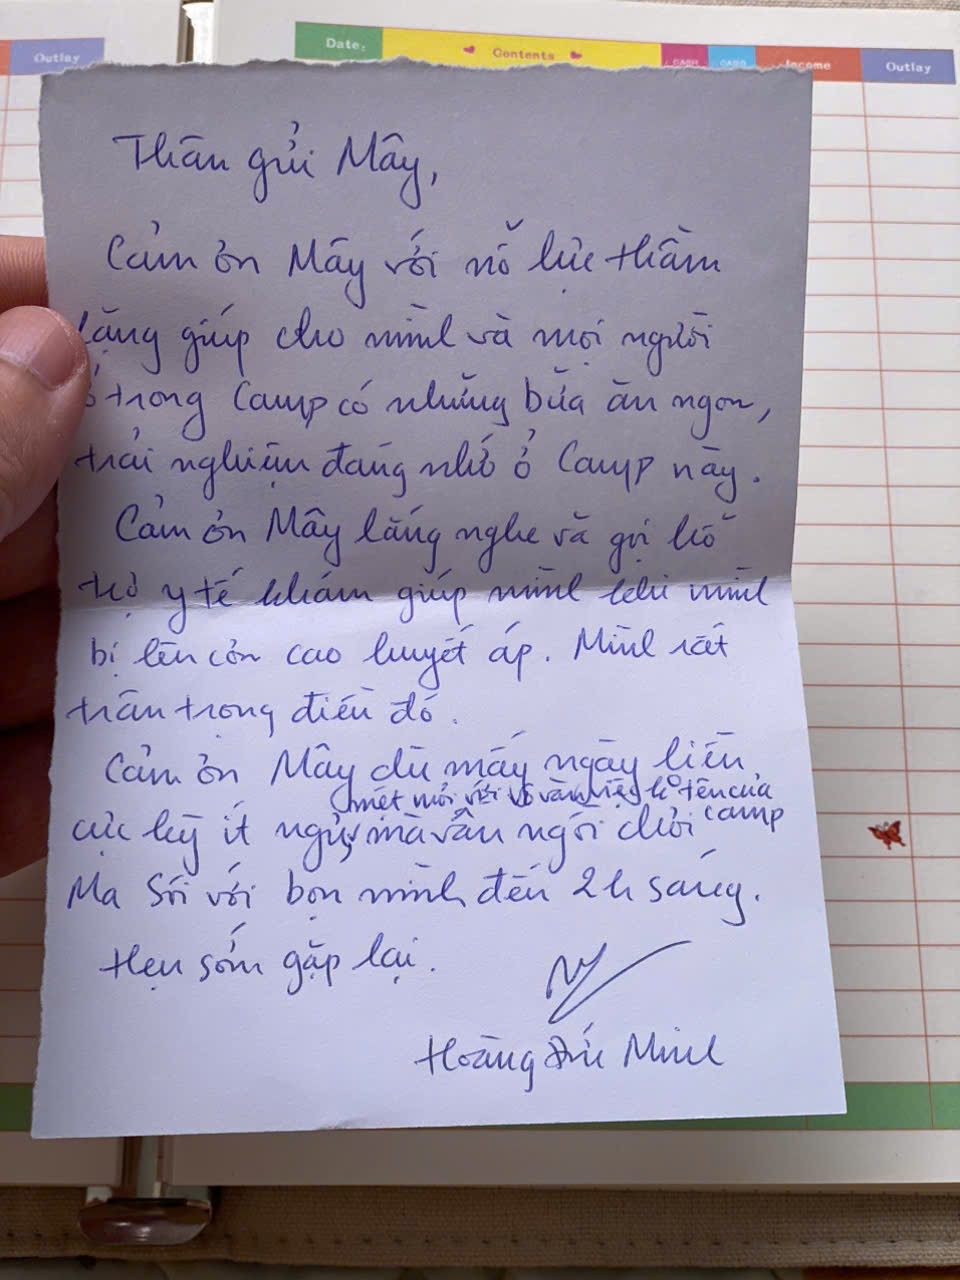 Outlay
Date:
Contents
CASH
CARD
Income
Outlay
Thân gửi Mây,
Cảm ơn Mây với nỗ lực thầm
lặng giúp cho mình và mọi người
ở trong Camp có những bữa ăn ngon,
trải nghiệm đáng nhớ ở Camp này.
Cảm ơn Mây lắng nghe và gọi hỗ
trợ y tế khám giúp mình khi mình
bị lên cơn cao huyết áp. Mình rất
trân trọng điều đó.
Cảm ơn Mây dù mấy ngày liền
cực kỳ ít ngủ, mệt mỏi với vô vàn việc k tên của camp mà vẫn ngồi chơi
Ma Sói với bọn mình đến 2h sáng.
Hẹn sớm gặp lại.
Hoàng Đức Minh